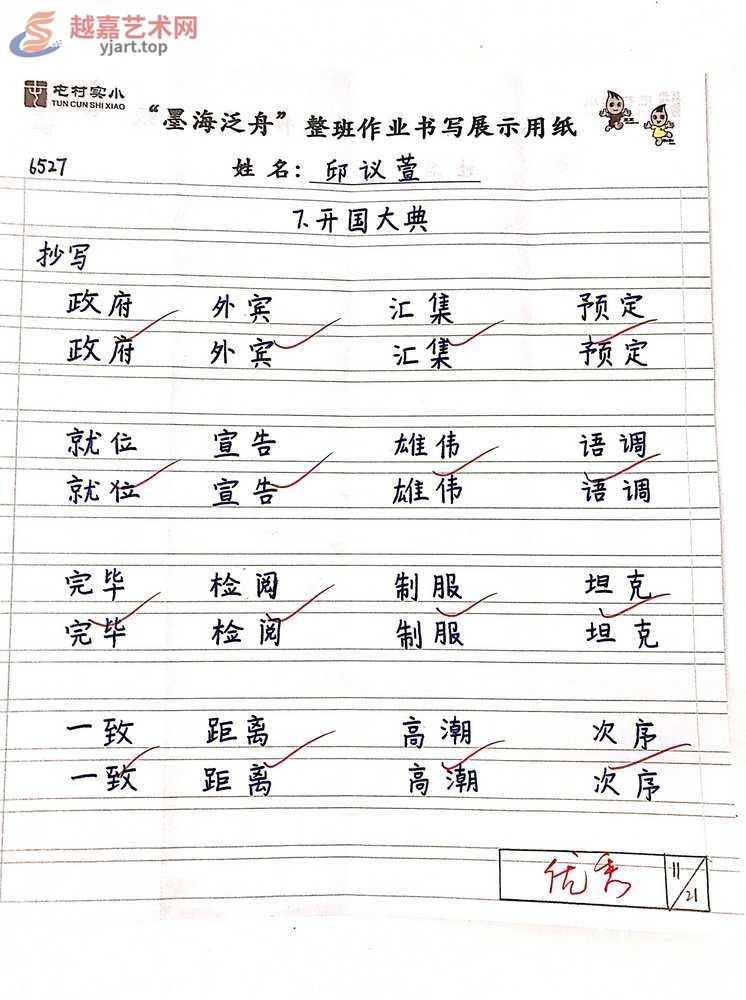 越嘉艺术网
yjart.top
屯村实小
TUN CUN SHI XIAO
“墨海泛舟”整班作业书写展示用纸
6527 姓名：邱议萱
7.开国大典
抄写
政府 外宾 汇集 预定
政府 外宾 汇集 预定
就位 宣告 雄伟 语调
就位 宣告 雄伟 语调
完毕 检阅 制服 坦克
完毕 检阅 制服 坦克
一致 距离 高潮 次序
一致 距离 高潮 次序
优秀 11/21